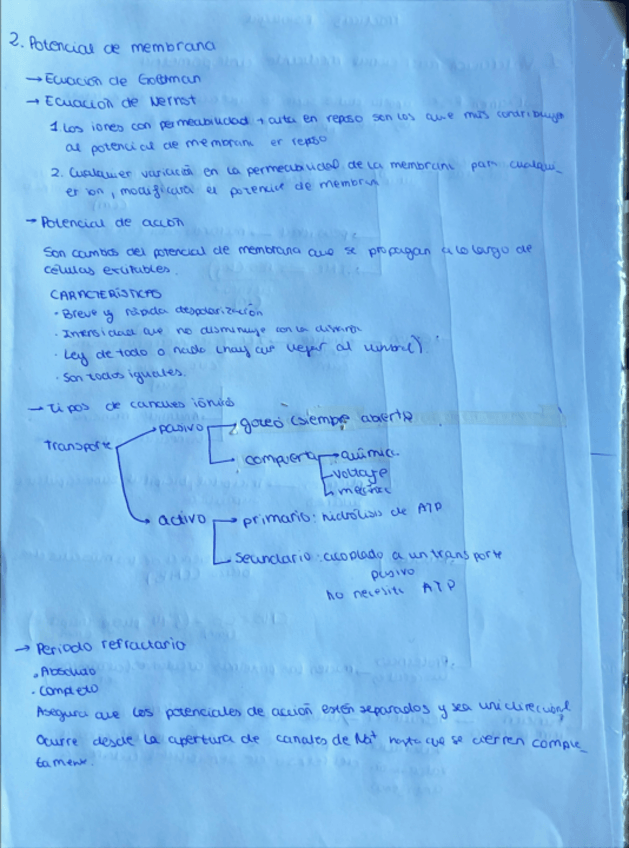 2. Potencial de membrana
→ Ecuación de Goldman
→ Ecuación de Nernst
1. Los iones con permeabilidad + alta en reposo son los que más contribuye
al potencial de membrana en reposo
2. Cualquier variación en la permeabilidad de la membrana para cualqui_
er ion, modificará el potencial de membrana
→ Potencial de acción
Son cambios del potencial de membrana que se propagan a lo largo de
células excitables.
CARACTERÍSTICAS
· Breve y rápida despolarización
· Intensidad que no disminuye con la distancia
· Ley de todo o nada (hay que llegar al umbral)
· Son todos iguales.
→ Tipos de canales iónicos
Transporte
pasivo → goteo (siempre abierto)
compuerta → química
voltaje
mecánica
activo → primario: hidrólisis de ATP
secundario: acoplado a un transporte
pasivo
No necesita ATP
→ Periodo refractario
· Absoluto
· Completo
Asegura que los potenciales de acción estén separados y sea unidireccional
Ocurre desde la apertura de canales de Na+ hasta que se cierren comple_
tamente.